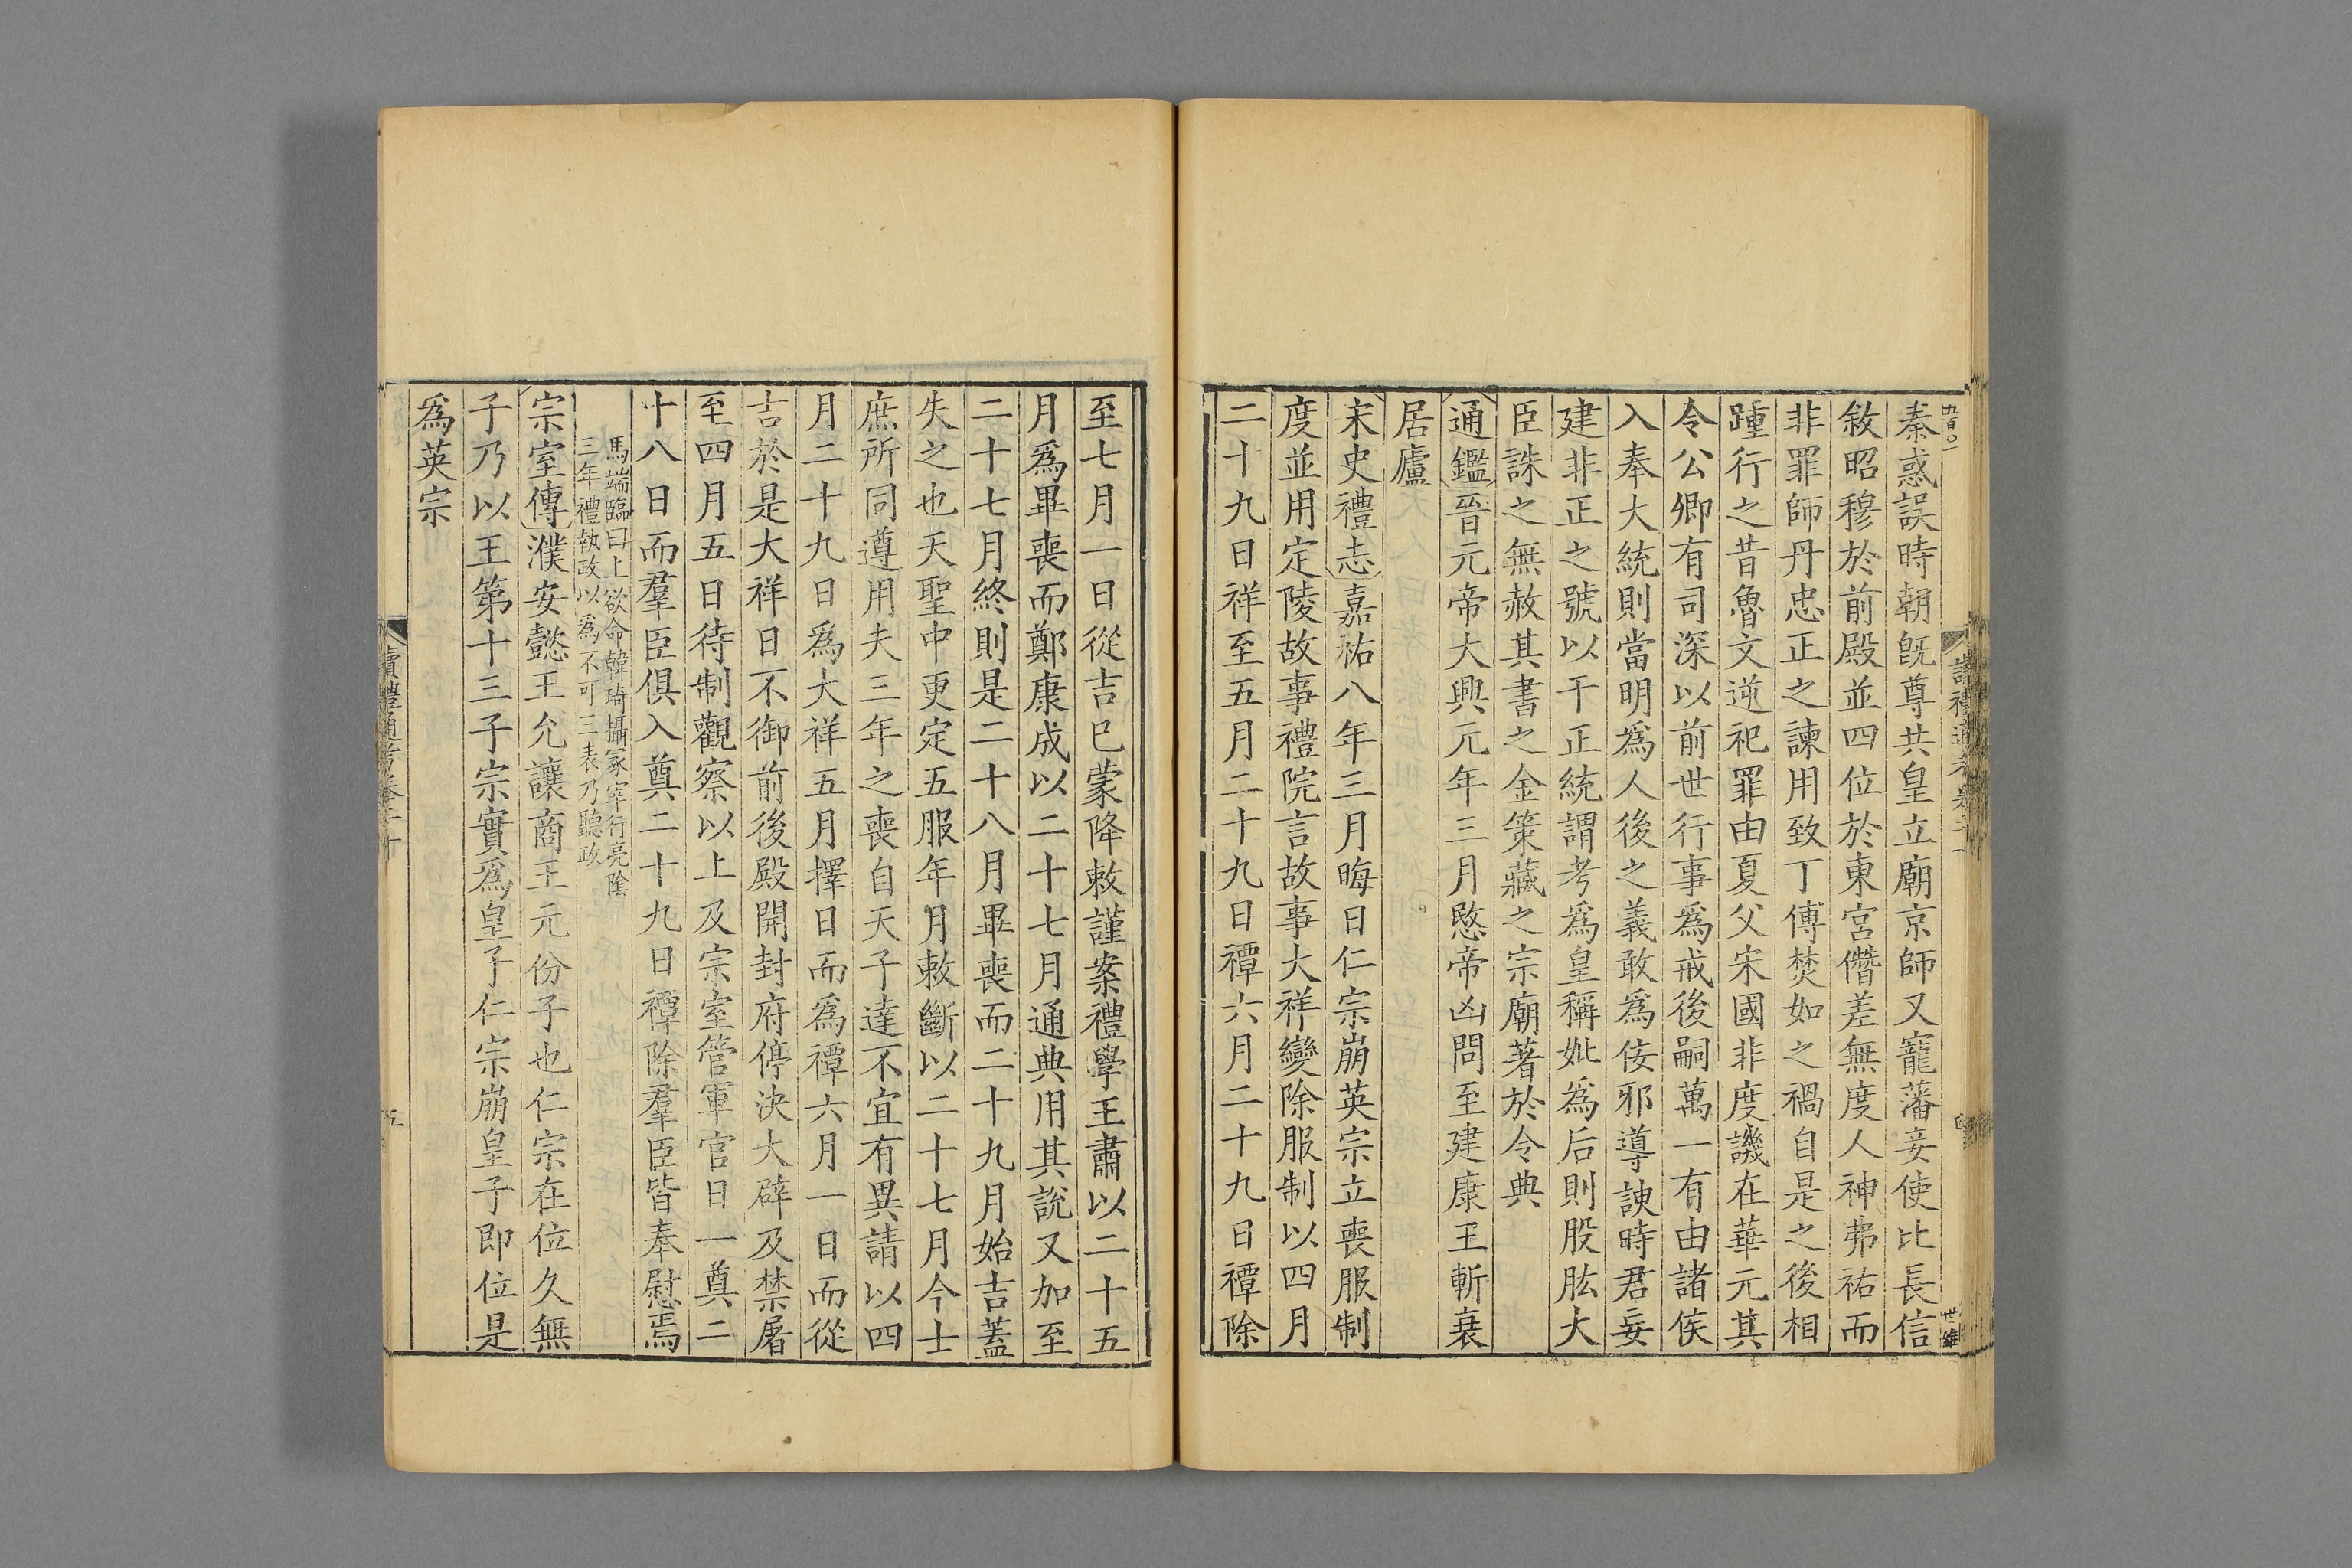 秦惑誤時朝旣尊共皇立廟京師又寵藩妾使比長信
敘昭穆於前殿並四位於東宮僭差無度人神弗祐而
非罪師丹忠正之諫用致丁傅焚如之禍自是之後相
踵行之昔魯文逆祀罪由夏父宋國非度譏在華元其
令公卿有司深以前世行事爲戒後嗣萬一有由諸侯
入奉大統則當明爲人後之義敢爲佞邪導諛時君妄
建非正之號以干正統謂考爲皇稱妣爲后則股肱大
臣誅之無赦其書之金策藏之宗廟著於令典
通鑑晉元帝大興元年三月愍帝凶問至建康王斬衰
居廬
宋史禮志嘉祐八年三月晦日仁宗崩英宗立喪服制
度並用定陵故事禮院言故事大祥變除服制以四月
二十九日祥至五月二十九日禫六月二十九日禫除
至七月一日從吉巳蒙降敕謹案禮學王肅以二十五
月爲畢喪而鄭康成以二十七月通典用其說又加至
二十七月終則是二十八月畢喪而二十九月始吉蓋
失之也天聖中更定五服年月敕斷以二十七月今士
庶所同遵用夫三年之喪自天子達不宜有異請以四
月二十九日爲大祥五月擇日而爲禫六月一日而從
吉於是大祥日不御前後殿開封府停決大辟及禁屠
至四月五日待制觀察以上及宗室管軍官日一奠二
十八日而羣臣俱入奠二十九日禫除羣臣皆奉慰焉
馬端臨曰上欲命韓琦攝冢宰行亮陰
三年禮執政以爲不可三表乃聽政
宗室傳濮安懿王允讓商王元份子也仁宗在位久無
子乃以王第十三子宗實爲皇子仁宗崩皇子即位是
爲英宗
讀禮通考卷二十
五